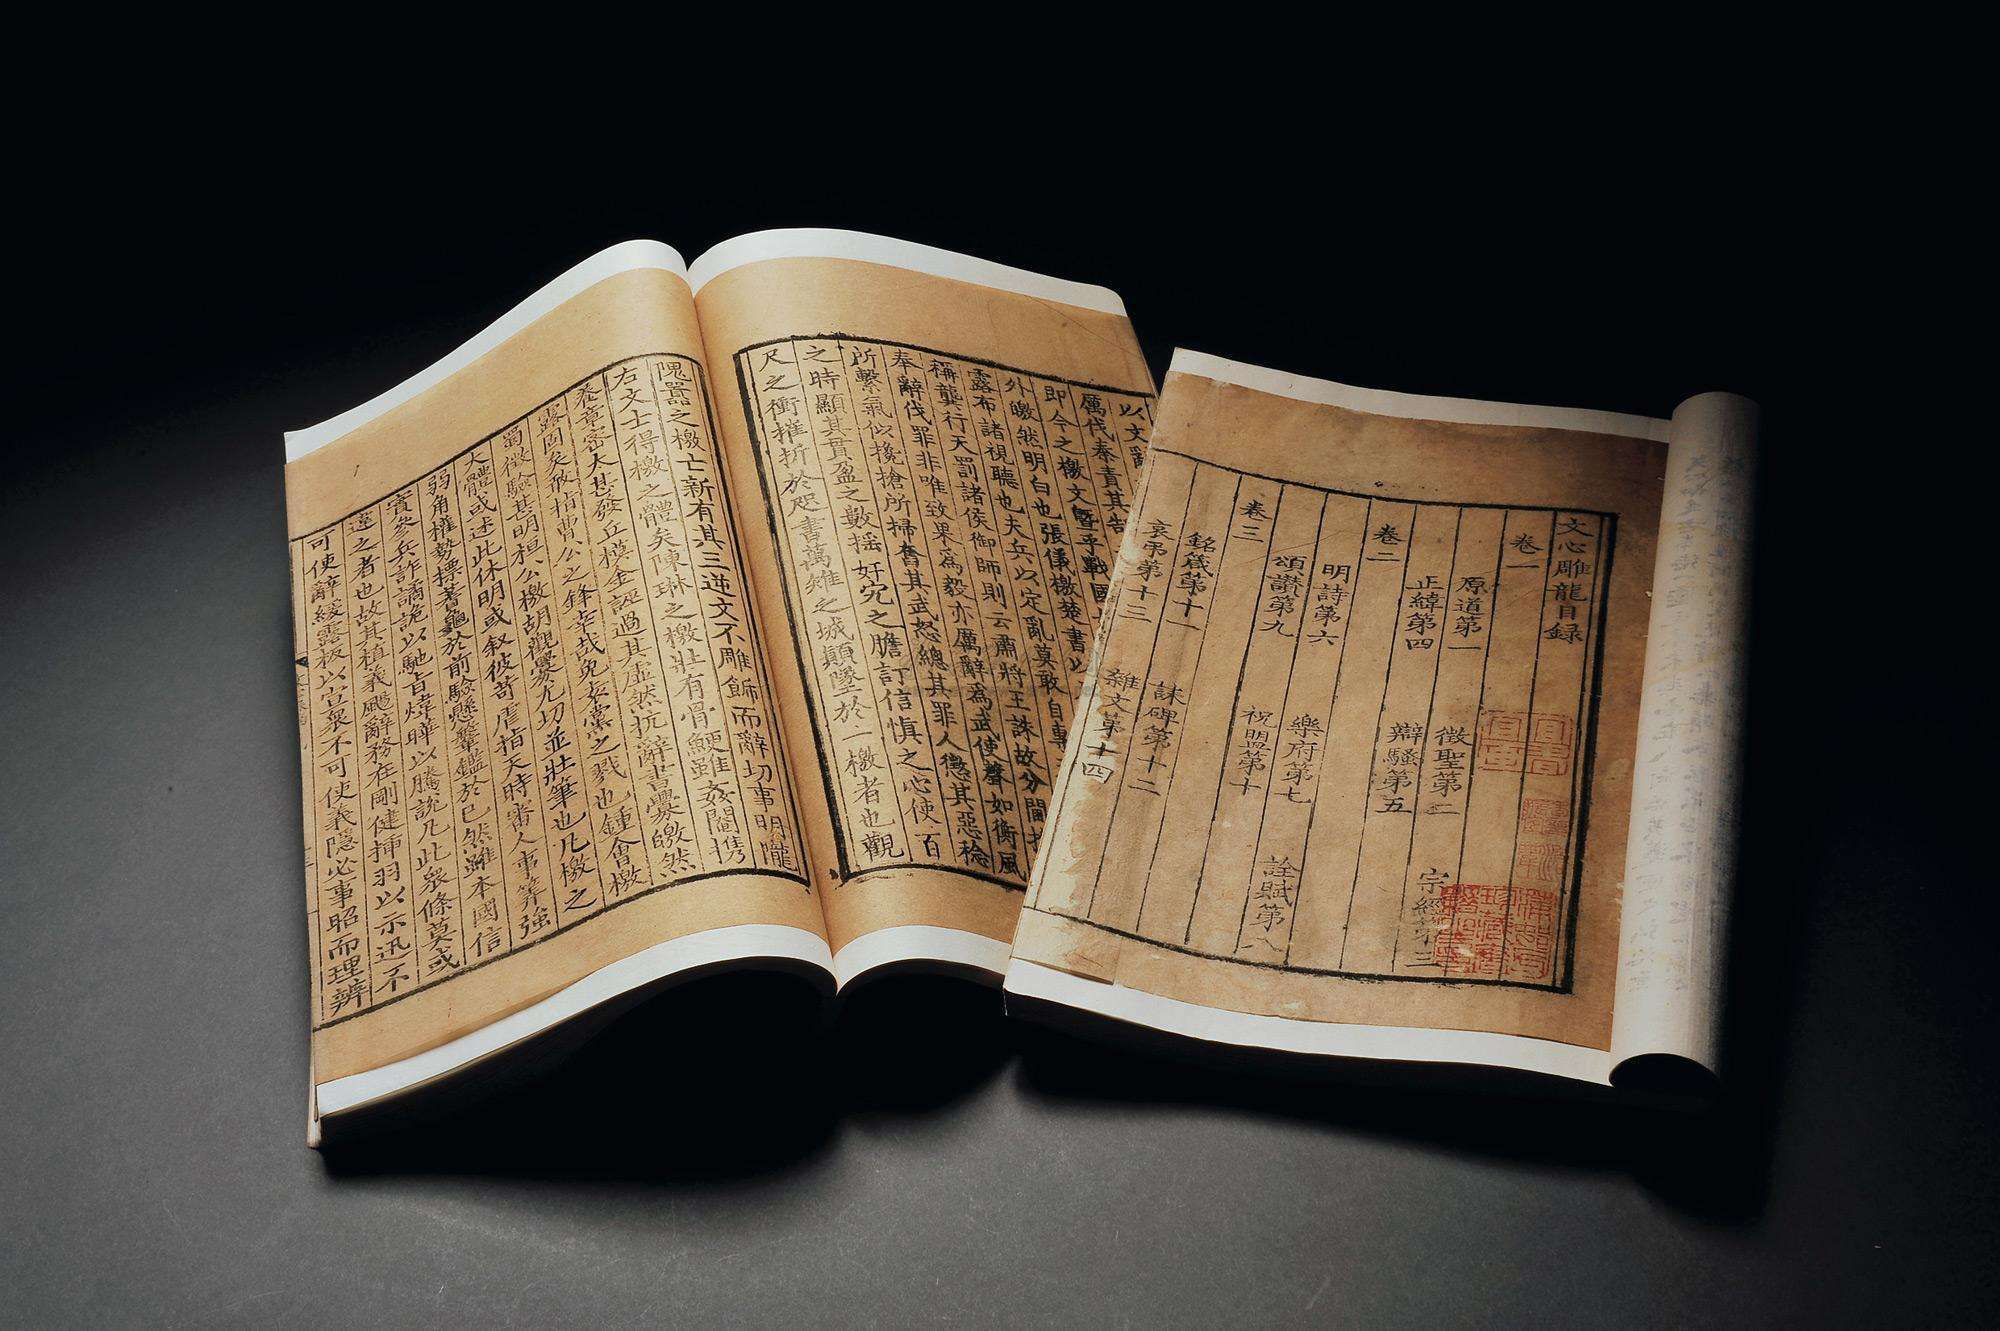 文心雕龍目錄
卷一
原道第一 徵聖第二 宗經第三
正緯第四 辯騷第五
卷二
明詩第六 樂府第七 詮賦第八
頌讚第九 祝盟第十
卷三
銘箴第十一 誄碑第十二
哀弔第十三 雜文第十四
以文辭
厲伐秦責其告
即今之檄文曁乎戰國
外皦然明白也張儀檄楚書以
露布諸視聽也夫兵以定亂莫敢自專
稱龔行天罰諸侯御師則云肅將王誅故分閫推
奉辭伐罪非唯致果為毅亦厲辭為武使聲如衝風
所繫氣似攙搶所掃奮其武怒總其罪人懲其惡稔
之時顯其貫盈之數搖奸宄之膽訂信慎之心使百
尺之衝摧折於咫書萬雉之城顛墜於一檄者也觀
隗囂之檄亡新有其三逆文不雕飾而辭切事明隴
右文士得檄之體矣陳琳之檄壯有骨鯁雖姦閹携
養章密太甚發丘模金誣過其虐然抗辭書釁皦然
露固矣敢指曹公之鋒幸哉免袁黨之戮也鍾會檄
蜀徵驗甚明桓公檄胡觀釁尤切並壯筆也凡檄之
大體或述此休明或叙彼苛虐指天時審人事筭強
弱角權勢標蓍龜於前驗懸鞶鑑於已然雖本國信
實參兵詐譎詭以馳旨煒曄以騰說凡此衆條莫或
違之者也故其植義颺辭務在剛健插羽以示迅不
可使辭緩露板以宣衆不可使義隱必事昭而理辨